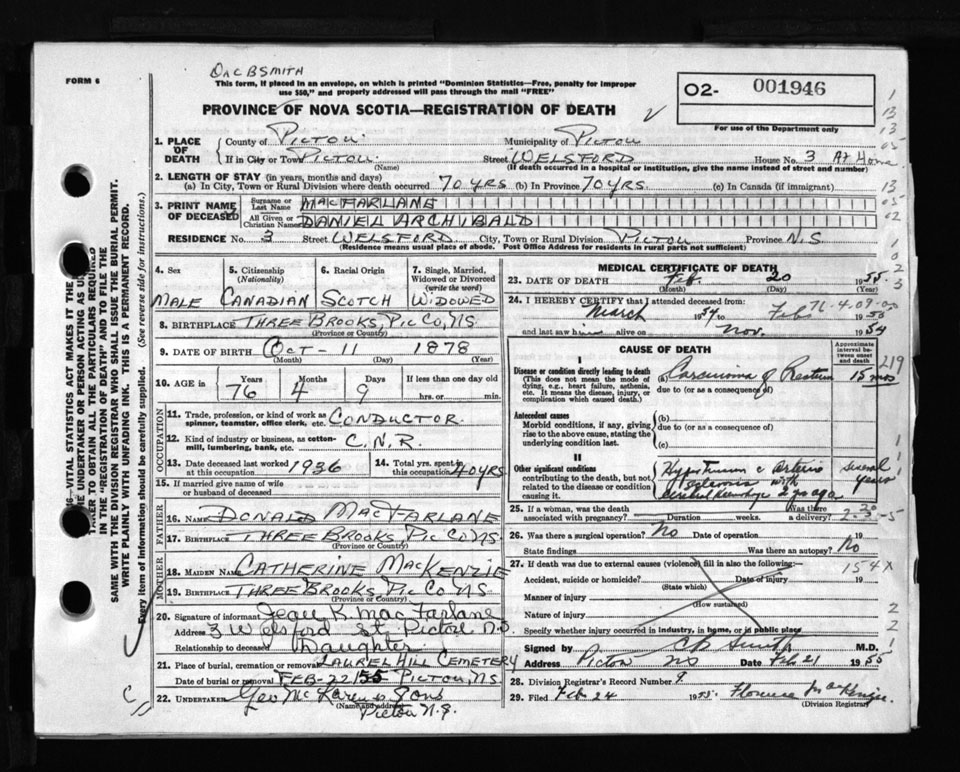 FORM 6
DR C B SMITH
This form, if placed in an envelope, on which is printed "Dominion Statistics—Free, penalty for improper
use $50," and properly addressed will pass through the mail "FREE"
PROVINCE OF NOVA SCOTIA—REGISTRATION OF DEATH
02- 001946
For use of the Department only
1. PLACE OF DEATH
County of PICTOU Municipality of PICTOU
If in City or Town PICTOU Street WELSFORD House No. 3 At Home
(Name) (If death occurred in a hospital or institution, give the name instead of street and number)
2. LENGTH OF STAY (in years, months and days)
(a) In City, Town or Rural Division where death occurred 70 YRS (b) In Province 70 YRS. (c) In Canada (if immigrant)
3. PRINT NAME OF DECEASED
Surname or Last Name MACFARLANE
All Given or Christian Names DANIEL ARCHIBALD
RESIDENCE No. 3 Street WELSFORD City, Town or Rural Division PICTOU Province N.S
(Residence means usual place of abode. Post Office Address for residents in rural parts not sufficient)
4. Sex MALE
5. Citizenship (Nationality) CANADIAN
6. Racial Origin SCOTCH
7. Single, Married, Widowed or Divorced (write the word) WIDOWED
8. BIRTHPLACE THREE BROOKS, PIC CO, N.S.
(Province or Country)
9. DATE OF BIRTH OCT - 11 1878
(Month) (Day) (Year)
10. AGE in Years 76 Months 4 Days 9 If less than one day old
hrs. or min.
OCCUPATION
11. Trade, profession, or kind of work as spinner, teamster, office clerk, etc. CONDUCTOR
12. Kind of industry or business, as cotton-mill, lumbering, bank, etc. C.N.R.
13. Date deceased last worked at this occupation 1936
14. Total yrs. spent in this occupation 40 YRS
15. If married give name of wife or husband of deceased
FATHER
16. NAME DONALD MACFARLANE
17. BIRTHPLACE THREE BROOKS, PIC CO NS.
(Province or Country)
MOTHER
18. MAIDEN NAME CATHERINE MACKENZIE
19. BIRTHPLACE THREE BROOKS, PIC CO NS
(Province or Country)
20. Signature of informant Jean K. MacFarlane
Address 3 Welsford St. Pictou N.S
Relationship to deceased Daughter
21. Place of burial, cremation or removal LAUREL HILL CEMETERY
Date of burial or removal FEB-22 1955 PICTOU, N.S.
22. UNDERTAKER Geo McLaren & Sons
(Name and address)
Pictou N.S.
MEDICAL CERTIFICATE OF DEATH
23. DATE OF DEATH Feb. 20 1955
(Month) (Day) (Year)
24. I HEREBY CERTIFY that I attended deceased from:
March 1954 to Feb 1955
and last saw him alive on Nov. 1954
76-4-09-00
CAUSE OF DEATH
Approximate interval between onset and death
I
Disease or condition directly leading to death
(This does not mean the mode of dying, e.g., heart failure, asthenia, etc. It means the disease, injury, or complication which caused death.)
(a) Carcinoma of Rectum 15 mos
due to (or as a consequence of)
Antecedent causes
Morbid conditions, if any, giving rise to the above cause, stating the underlying condition last.
(b)
due to (or as a consequence of)
(c)
II
Other significant conditions
contributing to the death, but not related to the disease or condition causing it.
Hypertension c arterio sclerosis with cerebral hemorrhage 2 yrs ago several years
25. If a woman, was the death associated with pregnancy? Duration weeks. Was there a delivery?
26. Was there a surgical operation? No Date of operation 19
State findings Was there an autopsy? No
27. If death was due to external causes (violence) fill in also the following:— 154X
Accident, suicide or homicide? Date of injury 19
(State which)
Manner of injury
(How sustained)
Nature of injury
Specify whether injury occurred in industry, in home, or in public place
Signed by CB Smith M.D.
Address Pictou NS Date Feb 21 1955
28. Division Registrar's Record Number 9
29. Filed Feb 24 1955. Florence MacKenzie
(Division Registrar)
SAME WITH THE DIVISION REGISTRAR WHO SHALL ISSUE THE BURIAL PERMIT.
WRITE PLAINLY WITH UNFADING INK. THIS IS A PERMANENT RECORD.
Every item of information should be carefully supplied. (See reverse side for instructions.)